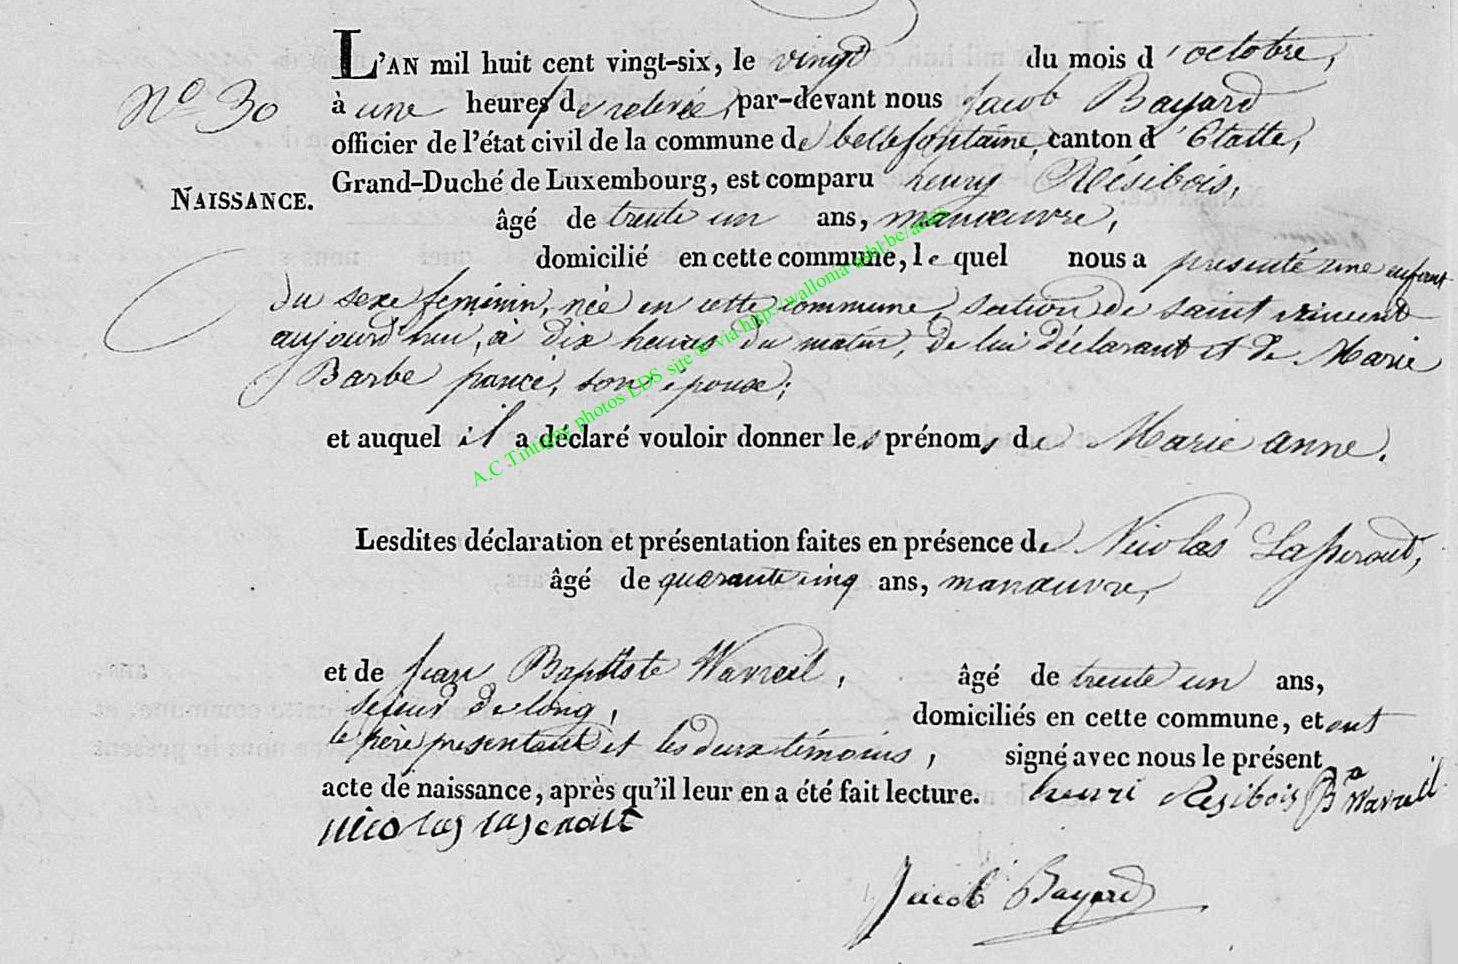 L'AN mil huit cent vingt-six, le vingt du mois d'octobre,
N° 30
à une heure de relevée, par-devant nous Jacob Bayard
officier de l'état civil de la commune de bellefontaine, canton d'Etalle,
NAISSANCE.
Grand-Duché de Luxembourg, est comparu henry Résibois,
âgé de trente un ans, manœuvre,
domicilié en cette commune, le quel nous a presenté une enfant
du sexe feminin, née en cette commune, section de saint vincent
aujourd'hui, à dix heures du matin, de lui déclarant et de Marie
Barbe poncé, son épouse;
et auquel il a déclaré vouloir donner les prénoms de Marie anne.
Lesdites déclaration et présentation faites en présence de Nicolas
âgé de quarante cinq ans, manœuvre,
et de Jean Baptiste Wavreil, âgé de trente un ans,
scieur de long, domiciliés en cette commune, et ont
le père presentant et les deux témoins, signé avec nous le présent
acte de naissance, après qu'il leur en a été fait lecture. henri Resibois Bta Wavreil
nicolas
Jacob Bayard
A.C .Tintigny photos LDS site & via http://wallonia-asbl.be/actes